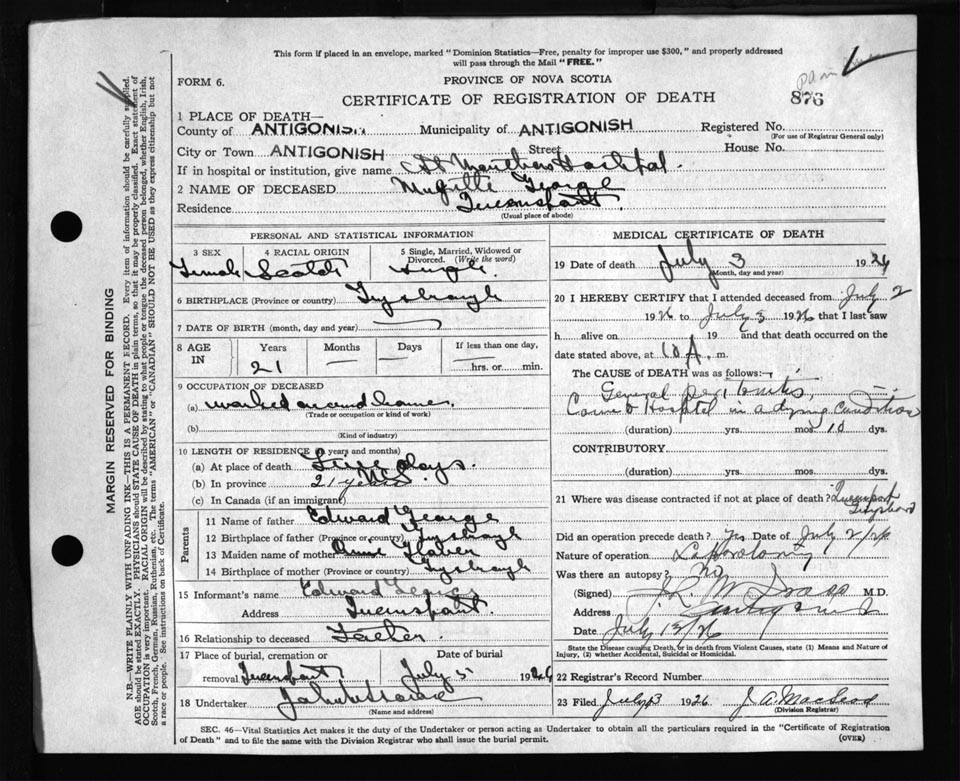 This form if placed in an envelope, marked "Dominion Statistics—Free, penalty for improper use $300," and properly addressed
will pass through the Mail "FREE."
FORM 6.
PROVINCE OF NOVA SCOTIA
CERTIFICATE OF REGISTRATION OF DEATH
876
1 PLACE OF DEATH—
County of ANTIGONISH Municipality of ANTIGONISH Registered No.
(For use of Registrar General only)
City or Town ANTIGONISH Street House No.
If in hospital or institution, give name St Marthas Hospital.
2 NAME OF DECEASED George
Residence Queensport.
(Usual place of abode)
PERSONAL AND STATISTICAL INFORMATION
3 SEX 4 RACIAL ORIGIN 5 Single, Married, Widowed or Divorced. (Write the word)
Female Scotch Single
6 BIRTHPLACE (Province or country) Guysborough
7 DATE OF BIRTH (month, day and year)
8 AGE IN Years Months Days If less than one day,
21 hrs. or min.
9 OCCUPATION OF DECEASED
(a) worked around home
(Trade or occupation or kind of work)
(b)
(Kind of industry)
10 LENGTH OF RESIDENCE (In years and months)
(a) At place of death days.
(b) In province 21 years
(c) In Canada (if an immigrant)
Parents
11 Name of father Edward George
12 Birthplace of father (Province or country) Guysborough
13 Maiden name of mother Annie
14 Birthplace of mother (Province or country) Guysborough
15 Informant's name Edward George
Address Queensport.
16 Relationship to deceased Father.
17 Place of burial, cremation or removal Queensport Date of burial July 5 1926
18 Undertaker
(Name and address)
MEDICAL CERTIFICATE OF DEATH
19 Date of death July 3 1926
(Month, day and year)
20 I HEREBY CERTIFY that I attended deceased from July 2
1926 to July 3 1926 that I last saw
h alive on 19 and that death occurred on the
date stated above, at 10 A. m.
The CAUSE OF DEATH was as follows:—
General peritonitis
Came to Hospital in a dying condition
(duration) yrs. mos. 10 dys.
CONTRIBUTORY
(duration) yrs. mos. dys.
21 Where was disease contracted if not at place of death? Queensport
Did an operation precede death? Yes Date of July 2/26
Nature of operation Laparotomy
Was there an autopsy? no
(Signed) M.D.
Address Antigonish
Date July 13/26
State the Disease causing Death, or in death from Violent Causes, state (1) Means and Nature of Injury, (2) whether Accidental, Suicidal or Homicidal.
22 Registrar's Record Number
23 Filed July 3 1926 J. A. Macleod
(Division Registrar)
SEC. 46—Vital Statistics Act makes it the duty of the Undertaker or person acting as Undertaker to obtain all the particulars required in the "Certificate of Registration
of Death" and to file the same with the Division Registrar who shall issue the burial permit.
(OVER)
MARGIN RESERVED FOR BINDING
N.B.—WRITE PLAINLY WITH UNFADING INK—THIS IS A PERMANENT RECORD. Every item of information should be carefully supplied.
AGE should be stated EXACTLY. PHYSICIANS should STATE CAUSE OF DEATH in plain terms, so that it may be properly classified. Exact statement of
OCCUPATION is very important. RACIAL ORIGIN will be described by stating to what people or tongue the deceased person belonged, whether English, Irish,
Scotch, French, German, Russian, Ruthenian, etc. The terms "AMERICAN" or "CANADIAN" SHOULD NOT BE USED as they express citizenship but not
a race or people. See instructions on back of Certificate.